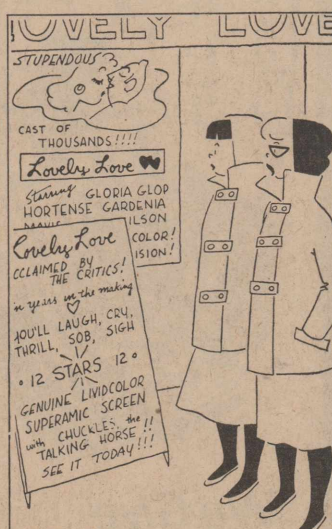 LOVELY LOVE
STUPENDOUS
CAST OF
THOUSANDS!!!!
Lovely Love
Starring GLORIA GLOP
HORTENSE GARDENIA
ILSON
COLOR!
ISION!
Lovely Love
CCLAIMED BY
THE CRITICS!
in years in the making
YOU'LL LAUGH, CRY,
THRILL, SOB, SIGH
• 12 STARS 12 •
GENUINE LIVIDCOLOR
SUPERAMIC SCREEN
with CHUCKLES, the
TALKING HORSE!!
SEE IT TODAY!!!